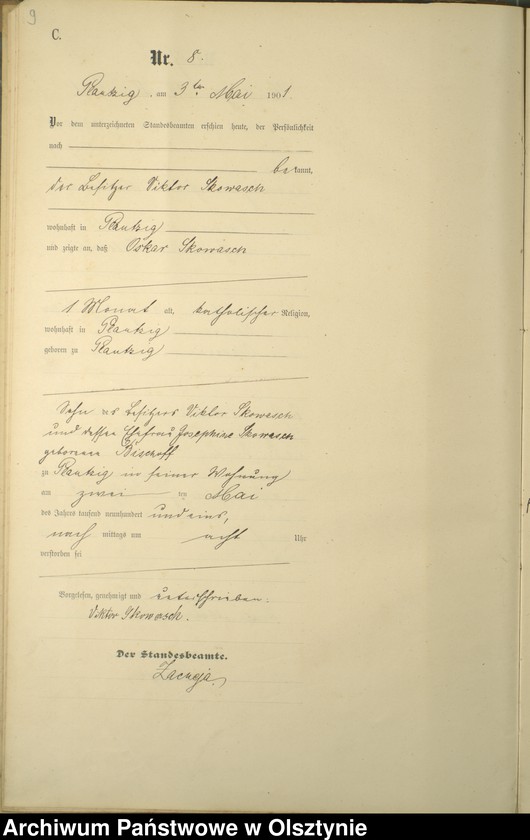 9
C.
Nr. 8.
Plautzig am 3ten Mai 1901.
Vor dem unterzeichneten Standesbeamten erschien heute, der Persönlichkeit
nach
bekannt,
der Besitzer Viktor Skowasch
wohnhaft in Plautzig
und zeigte an, daß Oskar Skowasch
1 Monat alt, katholischer Religion,
wohnhaft in Plautzig
geboren zu Plautzig
Sohn des Besitzers Viktor Skowasch
und dessen Ehefrau Josephine Skowasch
geborene Bischoff
zu Plautzig in seiner Wohnung
am zwei ten Mai
des Jahres tausend neunhundert und eins,
nach mittags um acht Uhr
verstorben sei
Vorgelesen, genehmigt und unterschrieben:
Viktor Skowasch.
Der Standesbeamte.
Archiwum Państwowe w Olsztynie